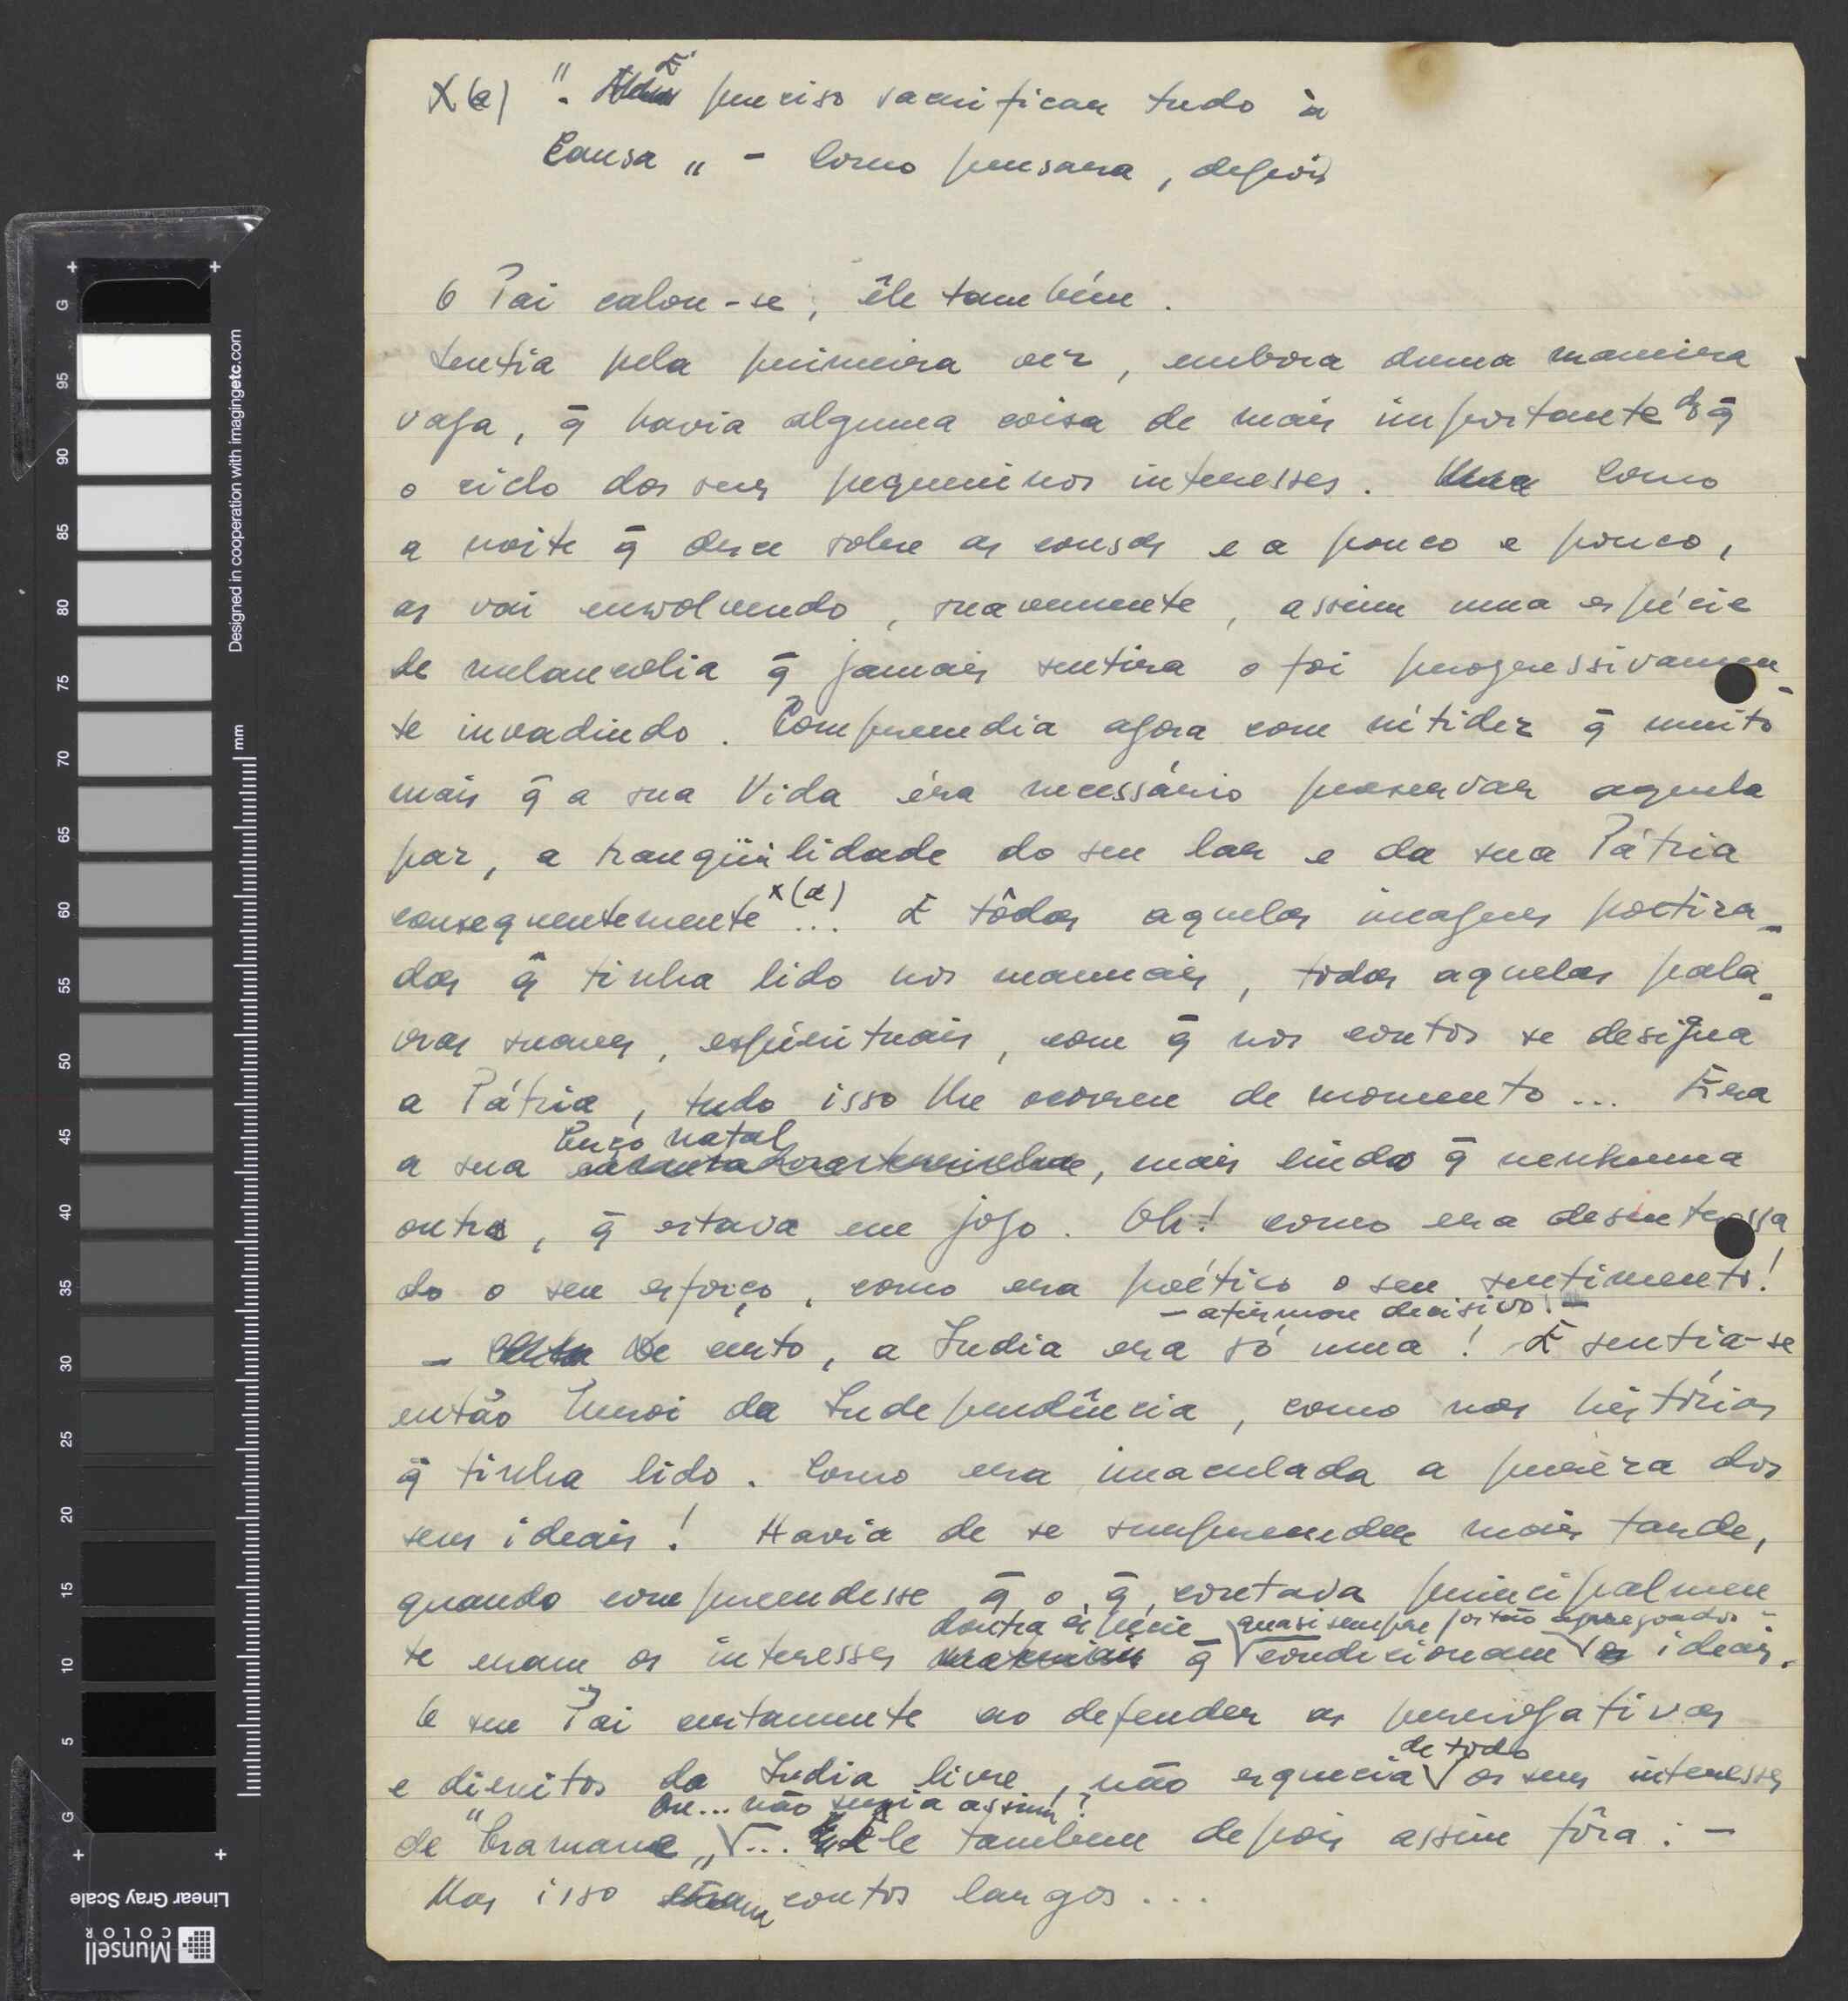 X(a) ". É preciso sacrificar tudo à
Causa „ - Como pensara, depois
O Pai calou-se, êle também.
Sentia pela primeira vez, embora duma maneira
vaga, q̄ havia alguma coisa de mais importante do q̄
o ciclo dos seus pequeninos interesses. Como
a noite q̄ desce sobre as cousas e a pouco e pouco,
as vai envolvendo, suavemente, assim uma espécie
de melancolia q̄ jamais sentira o foi progressivamen-
te invadindo. Compreendia agora com nitidez q̄ muito
mais q̄ a sua Vida éra necessário preservar aquela
paz, a tranqüilidade do seu lar e da sua Pátria
consequentemente x(a) ... E tôdas aquelas imagens poetiza-
das q̄ tinha lido nos manuais, todas aquelas pala-
vras suaves, espirituais, com q̄ nos contos se designa
a Pátria, tudo isso lhe ocorreu de momento... Era
berço natal
a sua , mais lindo q̄ nenhuma
outra, q̄ estava em jogo. Oh! como era desinteressa
do o seu esforço, como era poético o seu sentimento!
- afirmou decisivo! -
- De certo, a India era só uma! E sentia-se
então heroi da Independência, como nas histórias
q̄ tinha lido. Como era imaculada a purêza dos
seus ideais! Havia de se surpreender mais tarde,
quando compreendesse q̄ o q̄ contava principalmen
doutra espécie quasi sempre os tão apregoados -
te eram os interesses materiais q̄ √condicionam √ os ideais.
O seu Pai certamente ao defender as prerrogativas
de todo
e direitos da India livre, não esquecia √ os seus interesses
Ou... não seria assim?
de "bramane „ √... Êle tambem depois assim fôra: -
Mas isso eram contos largos...
Designed in cooperation with imagingetc.com
mm
G 95 90 85 80 75 70 65 60 55 50 45 40 35 30 25 20 15 10 5 G
Linear Gray Scale
Munsell
COLOR